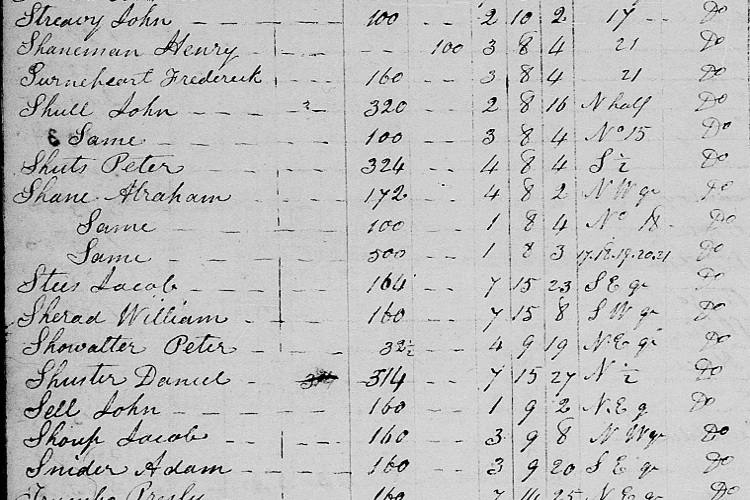 Streavy John 100 2 10 2 17 Do
Shaneman Henry 100 3 8 4 21 Do
Surneheart Frederick 160 3 8 4 21 Do
Shull John 320 2 8 16 N half Do
Same 100 3 8 4 No 15 Do
Shuts Peter 324 4 8 4 S ½ Do
Shane Abraham 172 4 8 2 N W qr Do
Same 100 1 8 4 No 18 Do
Same 500 1 8 3 17.18.19.20.21 Do
Stees Jacob 164 7 15 23 S E qr Do
Sherad William 160 7 15 8 S W qr Do
Showalter Peter 32½ 4 9 19 N E qr Do
Shuster Daniel 314 7 15 27 N ½ Do
Sell John 160 1 9 2 N E q Do
Shoup Jacob 160 3 9 8 N W qr Do
Snider Adam 160 3 9 20 S E qr Do
160 7 11 25 N E qr Do